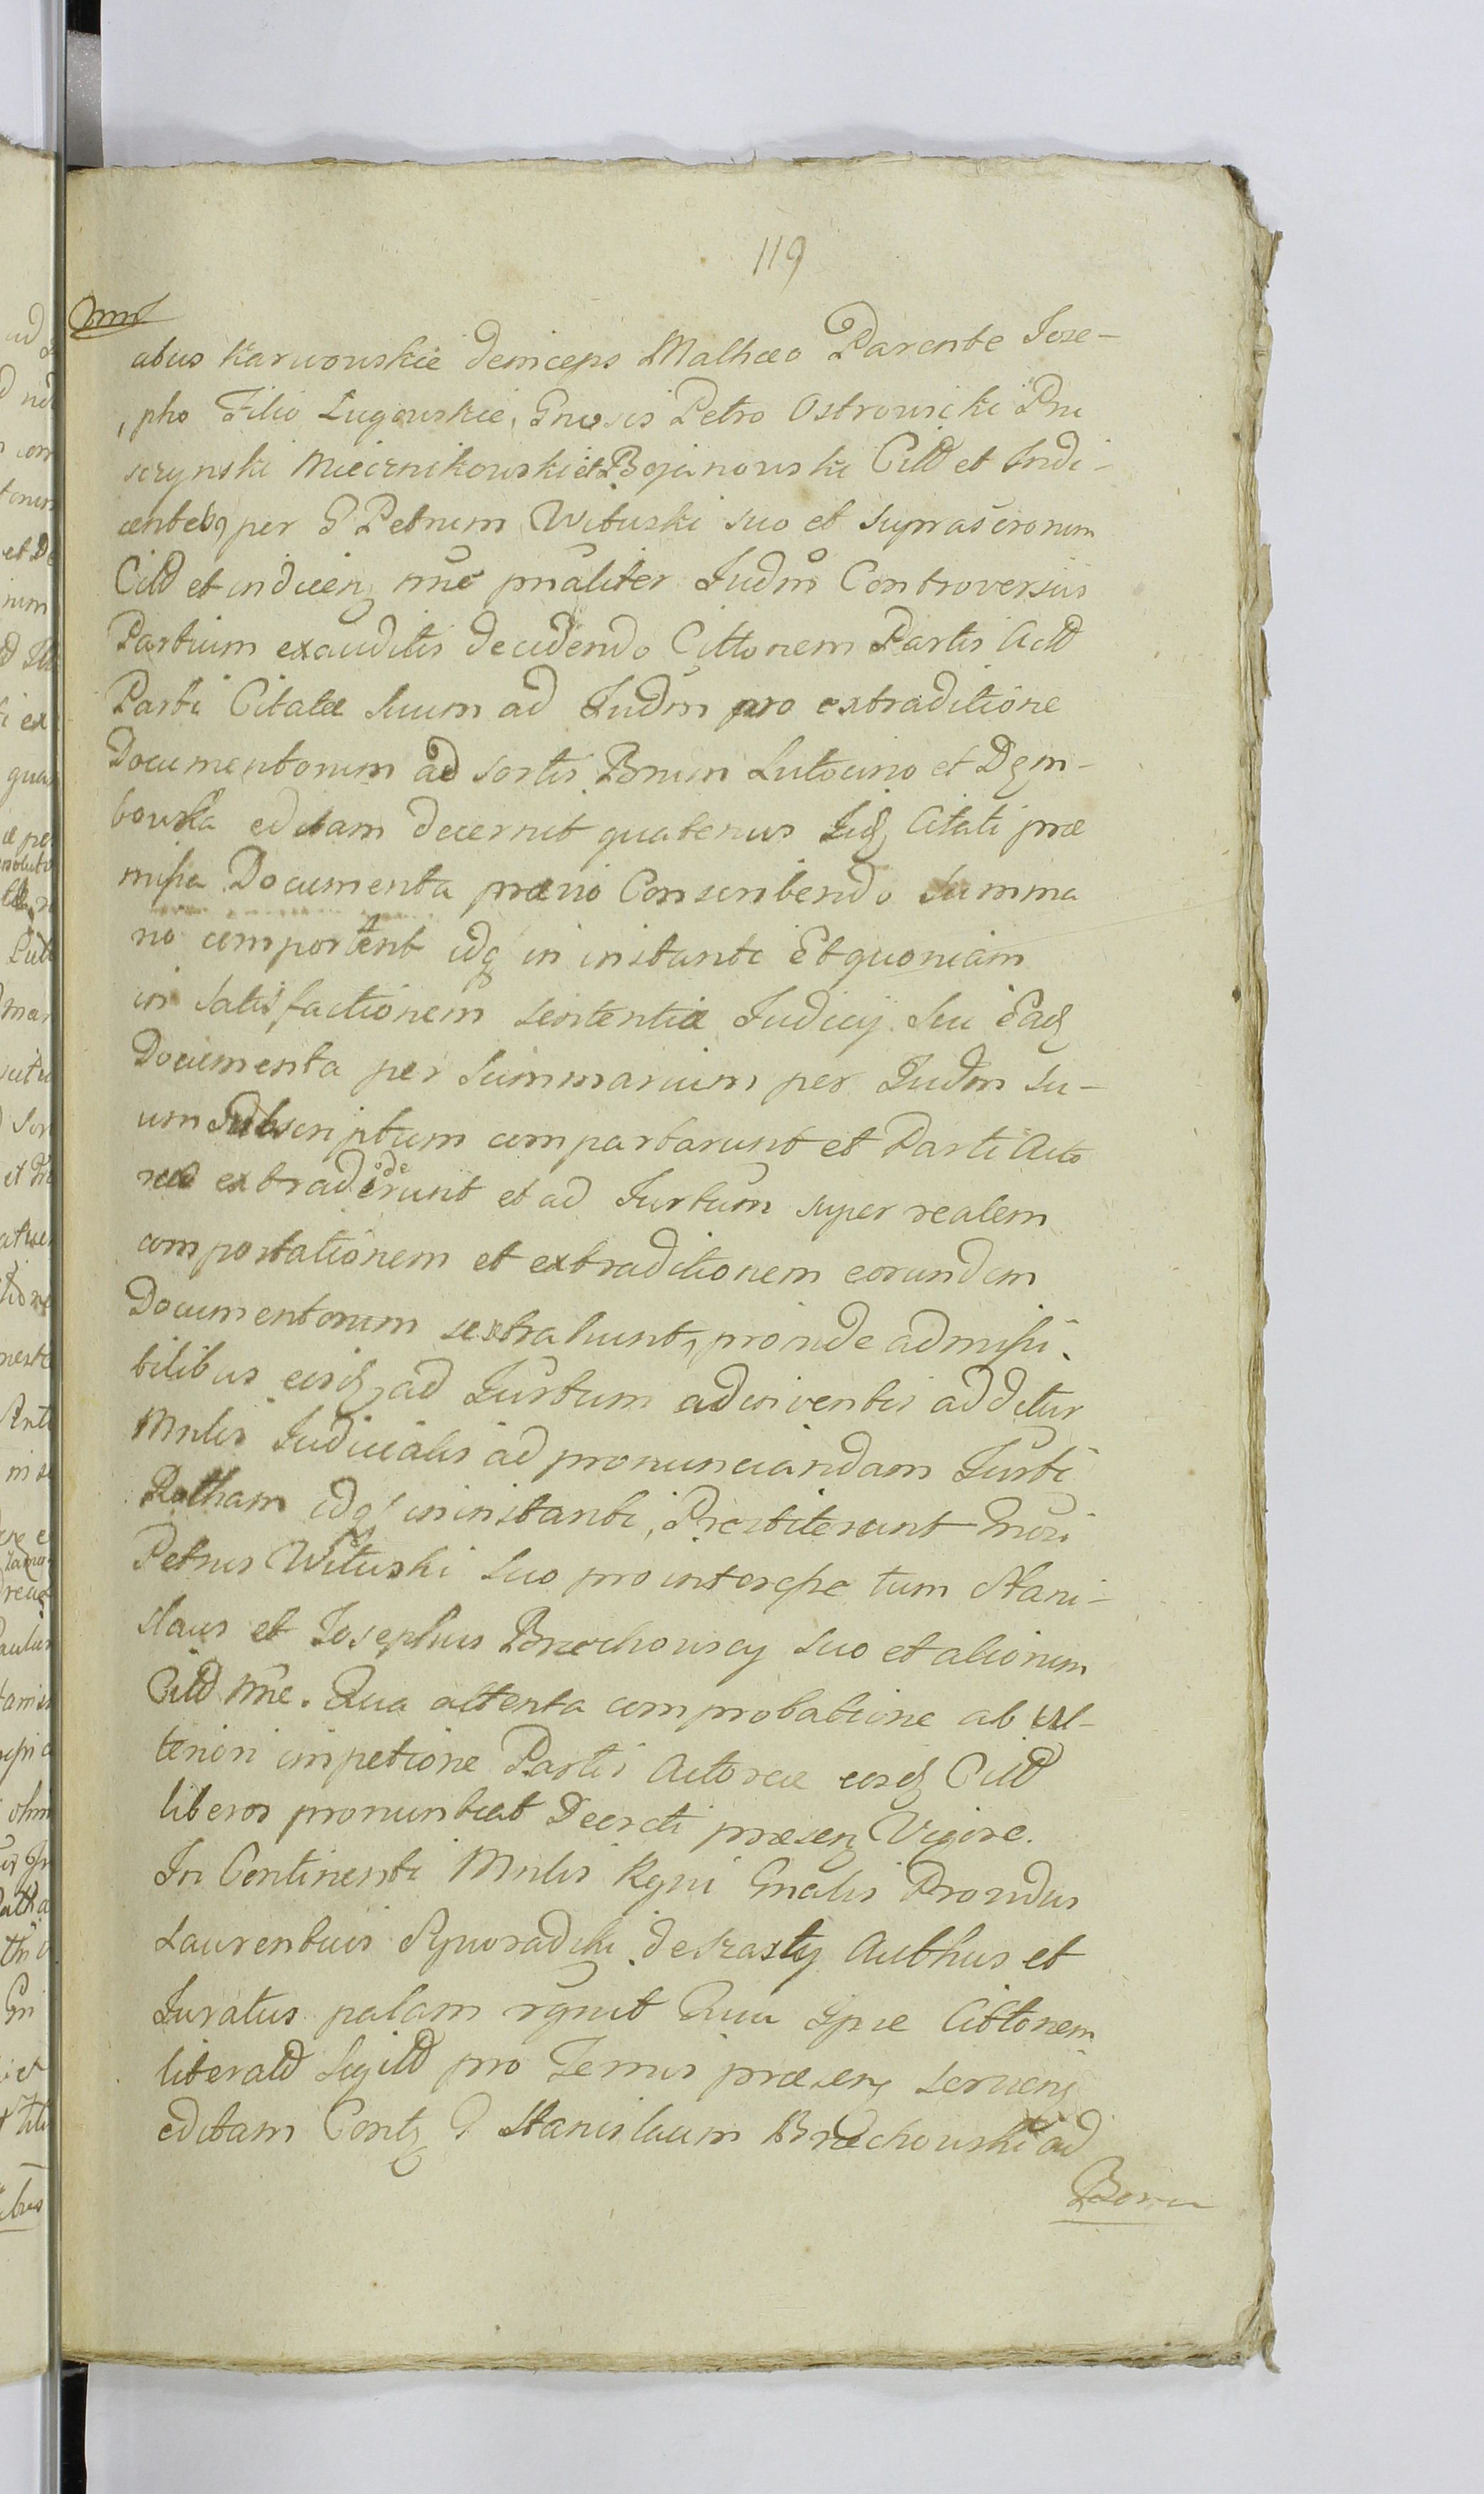 119
abus Karwouskie deinceps Mathæo Parente Jose-
pho Filio Lugouskie, Gnosis Petro Ostrowicki Pru
sczynski Miecznikowski et Bojanouski Citd et Indi-
centebq per G Petrum Wituski suo et suprascronum
Citd et indicenz nne pnaliter Judm Controversiis
Partium exauditis decidendo Cittonem Partis Actd
Parti Citatæ suum ad Judm pro extraditione
Documentorum ad sortis Bnum Lutocino et Dęm-
bouska editam decernit quatenus Iidz Citati præ
missa Documenta prævio Conscribendo summa
rio comportent idq in instanti Et quoniam
in satisfactionem sententiæ Judicij sui Eadz
Documenta per Summarium per Judm su-
um subscriptum comportarunt et Parti Acto
reæ extradiderunt et ad Jurtum super realem
comportationem et extraditionem eorundem
Documentorum se extrahunt, proinde admissi
bilibus eisdz ad Jurtum adinventis additur
Mnlis Judicialis ad pronunciandam Jurti
Rotham idq in instanti, Præstiterunt Gnosi
Petrus Wituski suo pro interesse tum Stani-
slaus et Josephus Brochouscy suo et aliorum
Citd nne. Qua attenta comprobatione ab ul-
teriori impetione Partis Actoreæ eosdz Citd
liberos pronuntiat Decreti præsenz Vigore.
In Continenti Mnlis Rgni Gnalis Providus
Laurentius Sgnoradzki de Krasty Authus et
Juratus palam rgnvit Quia Ipse Cittonem
literald sigild pro Temris præsenz servenz
editam Contz G Stanislaum Brochouski ad
Bona